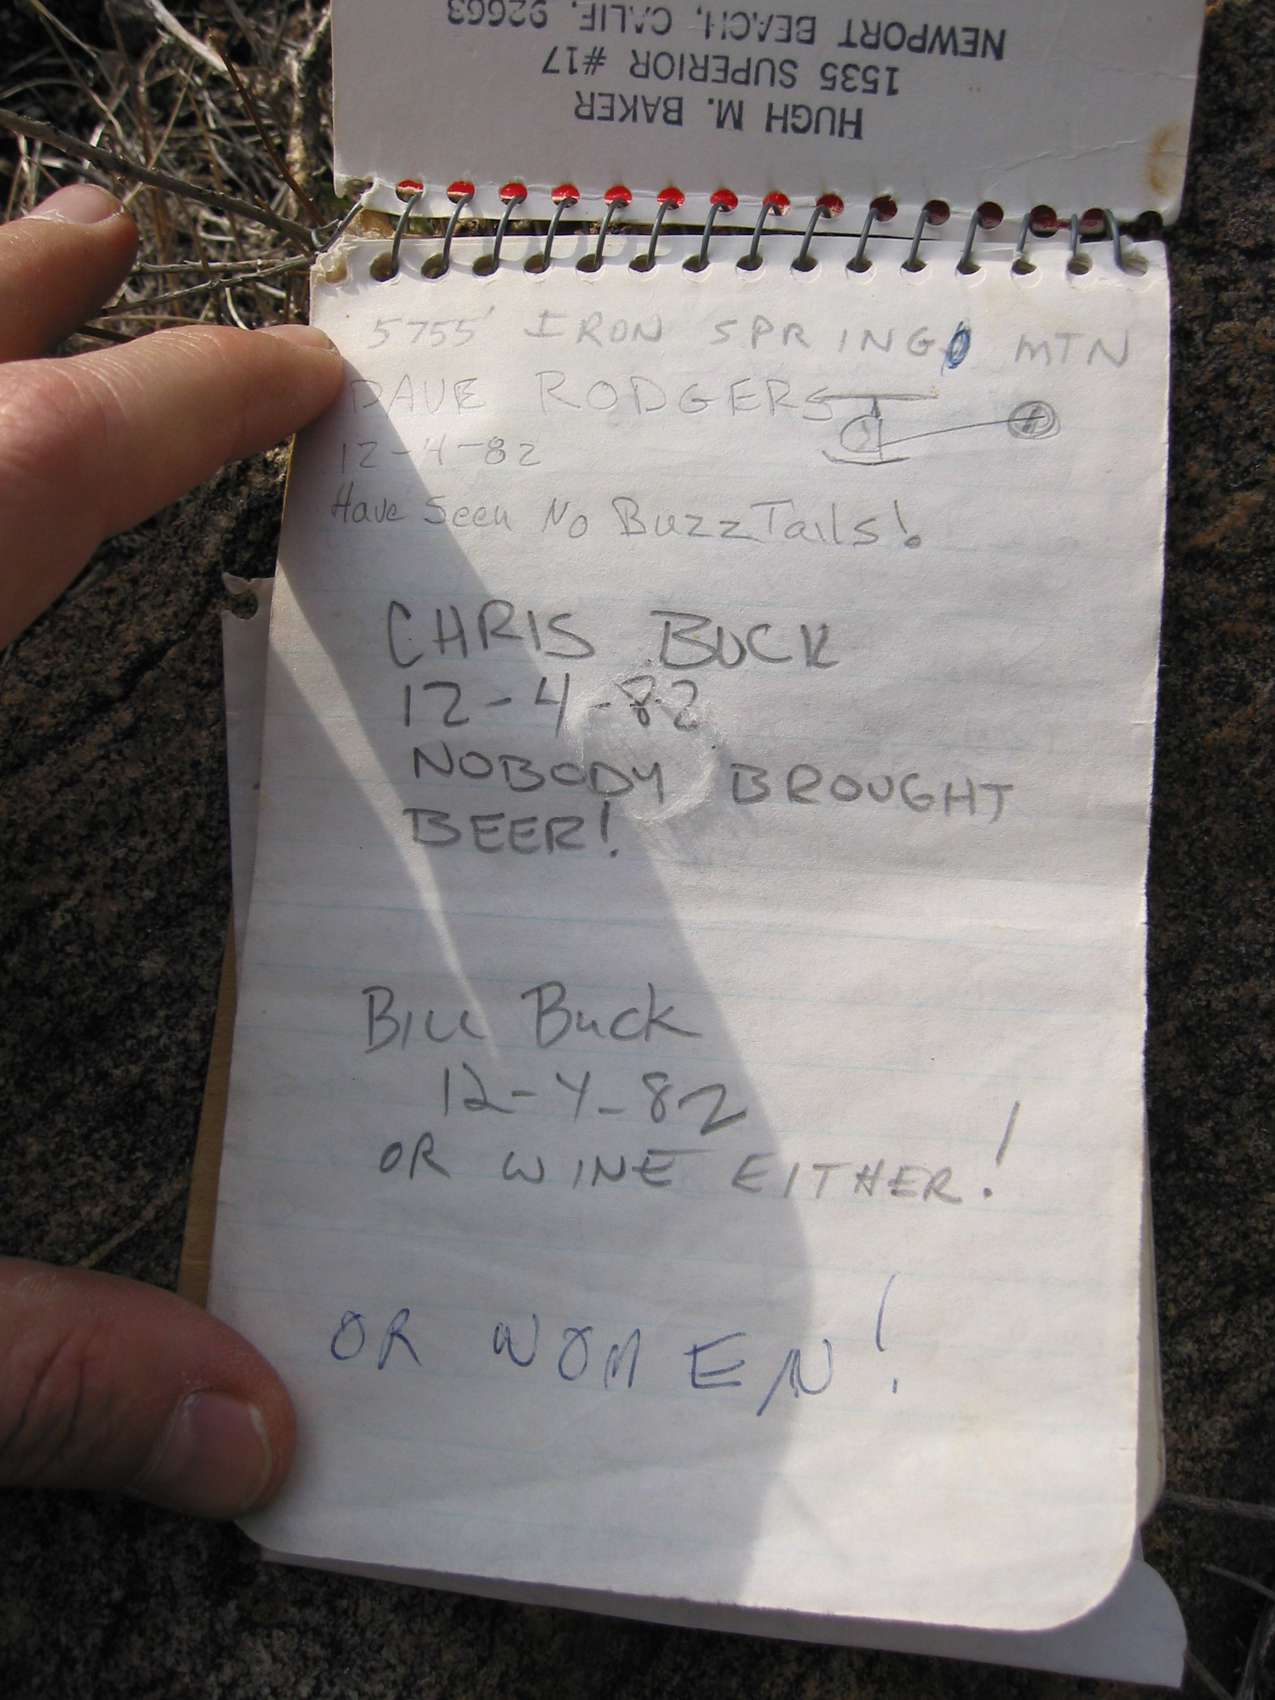 HUGH M. BAKER
1535 SUPERIOR #17
NEWPORT BEACH, CALIF. 92663
5755' IRON SPRING MTN
DAVE RODGERS
12-4-82
Have Seen No BuzzTails!
CHRIS BUCK
12-4-82
NOBODY BROUGHT
BEER!
Bill Buck
12-4-82
OR WINE EITHER!
OR WOMEN!